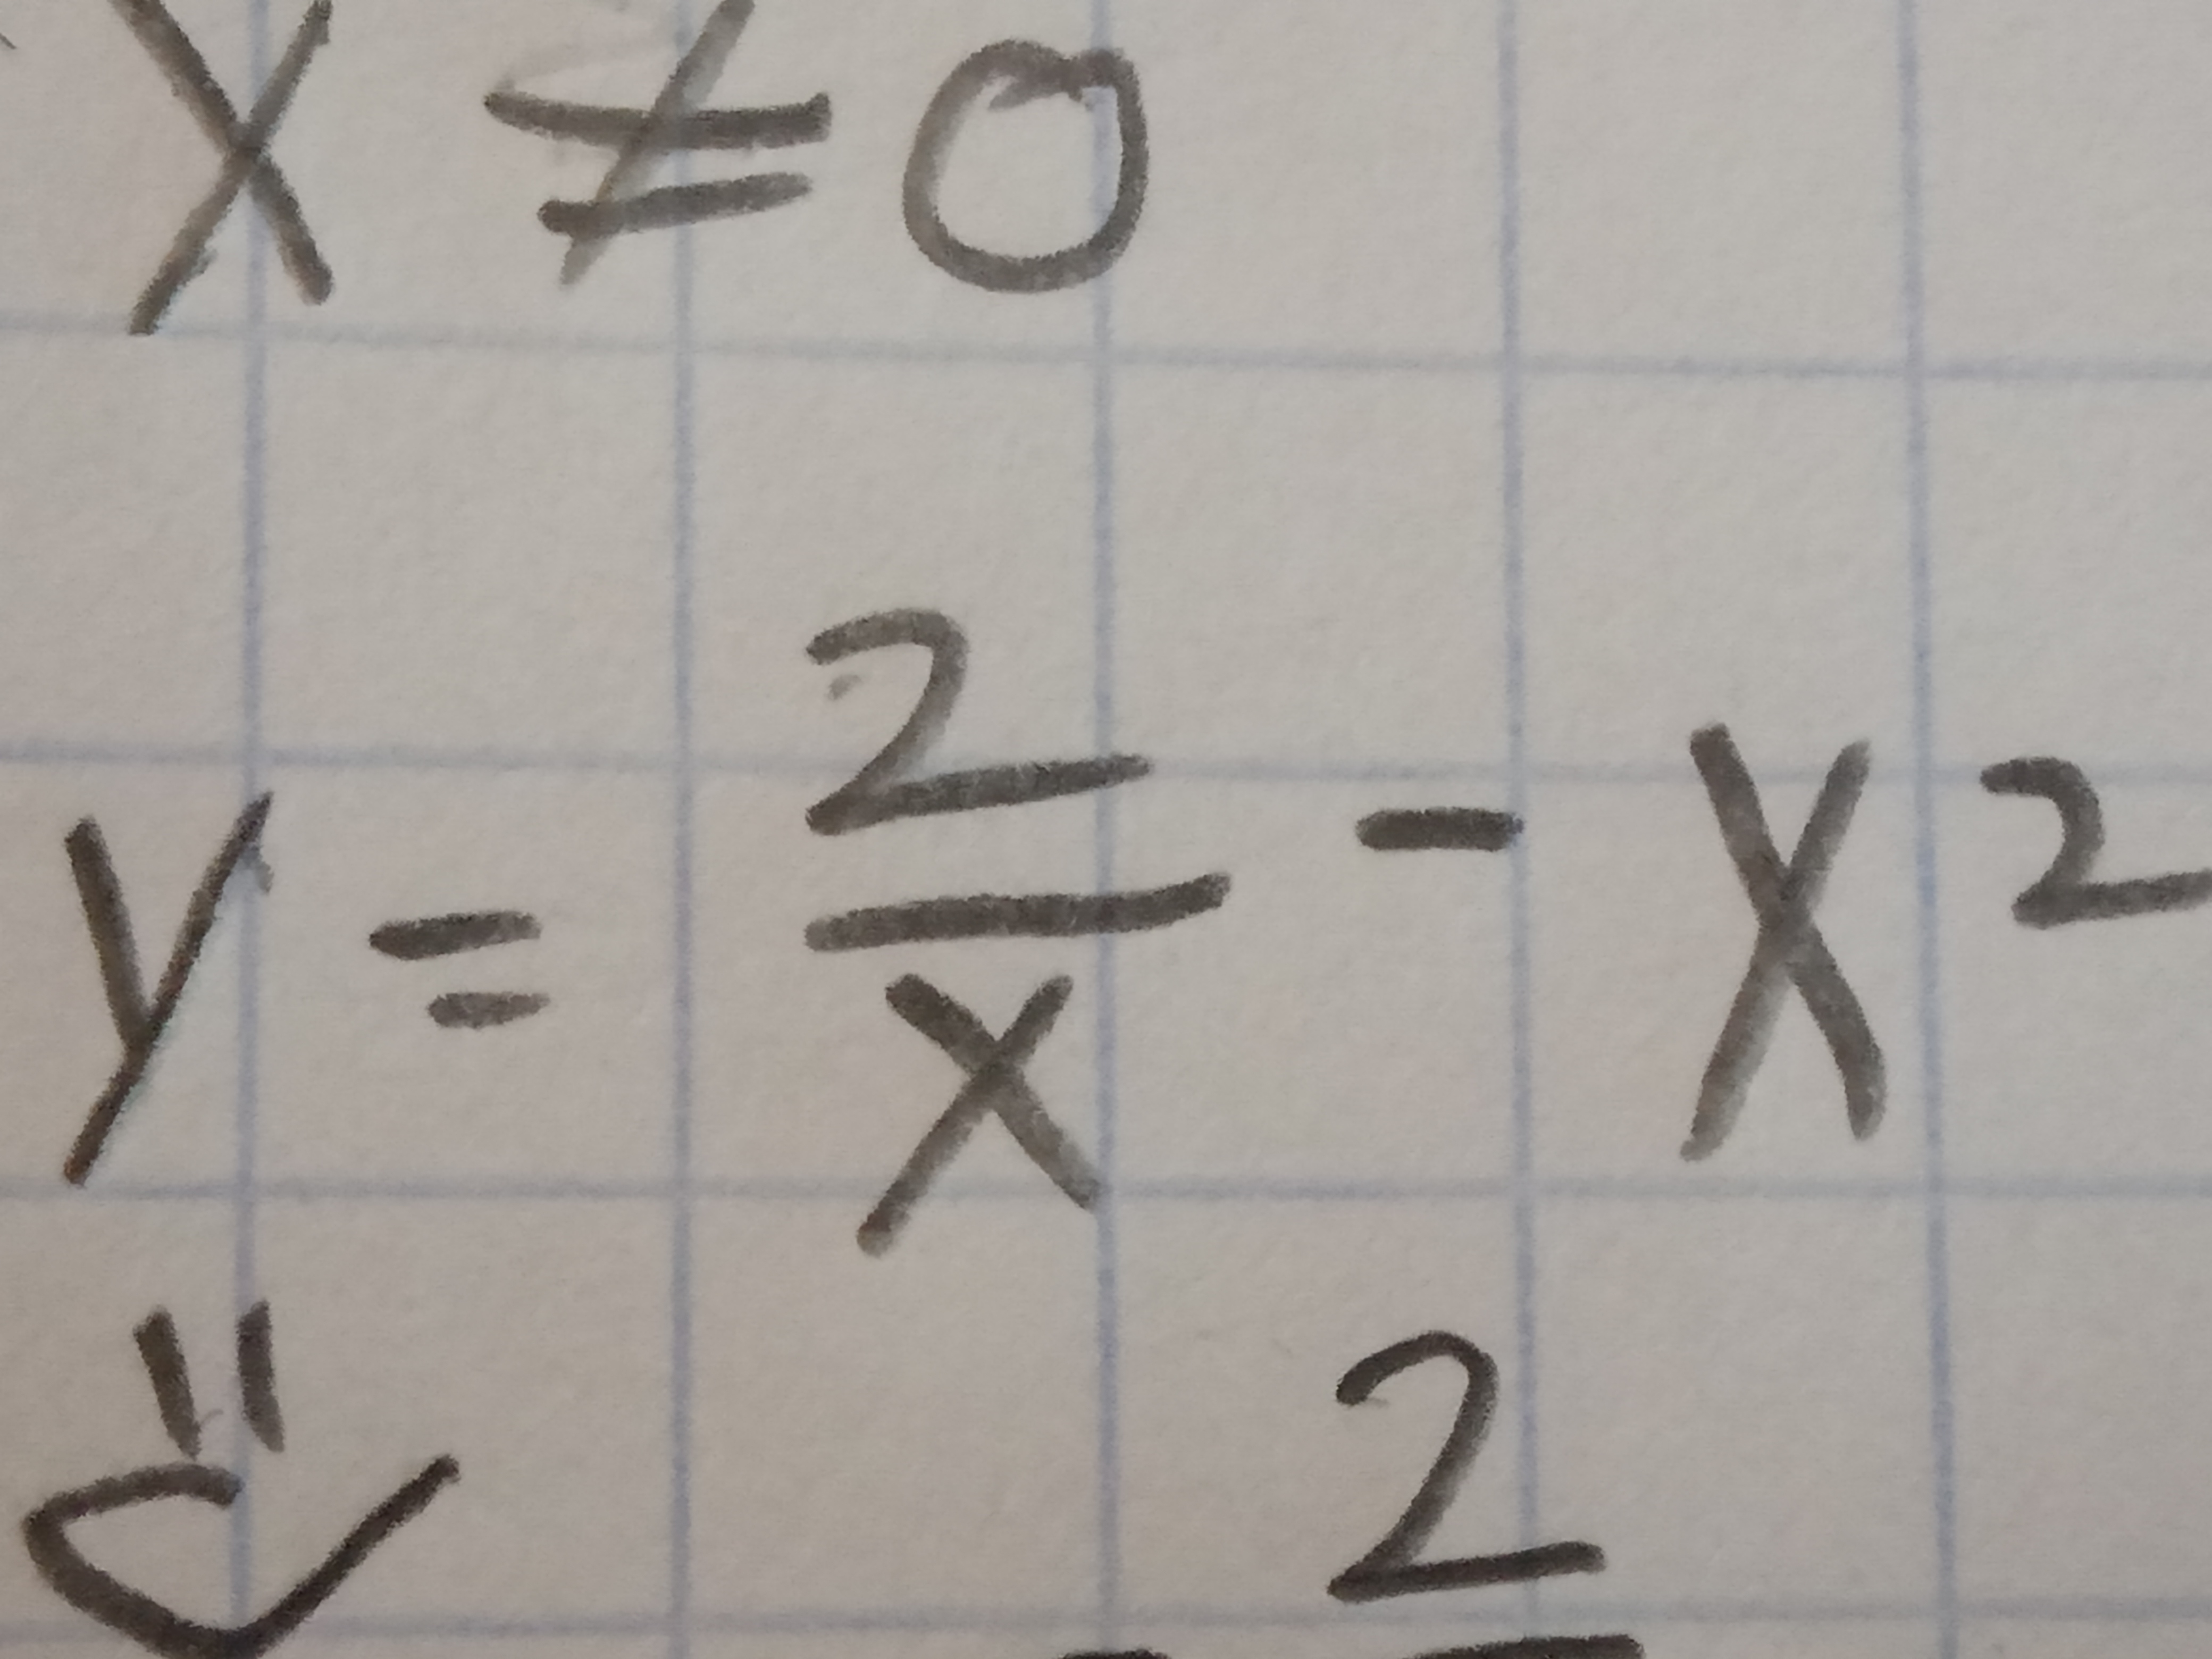 x ≠ 0
y = 2/x - x²
⇓
2